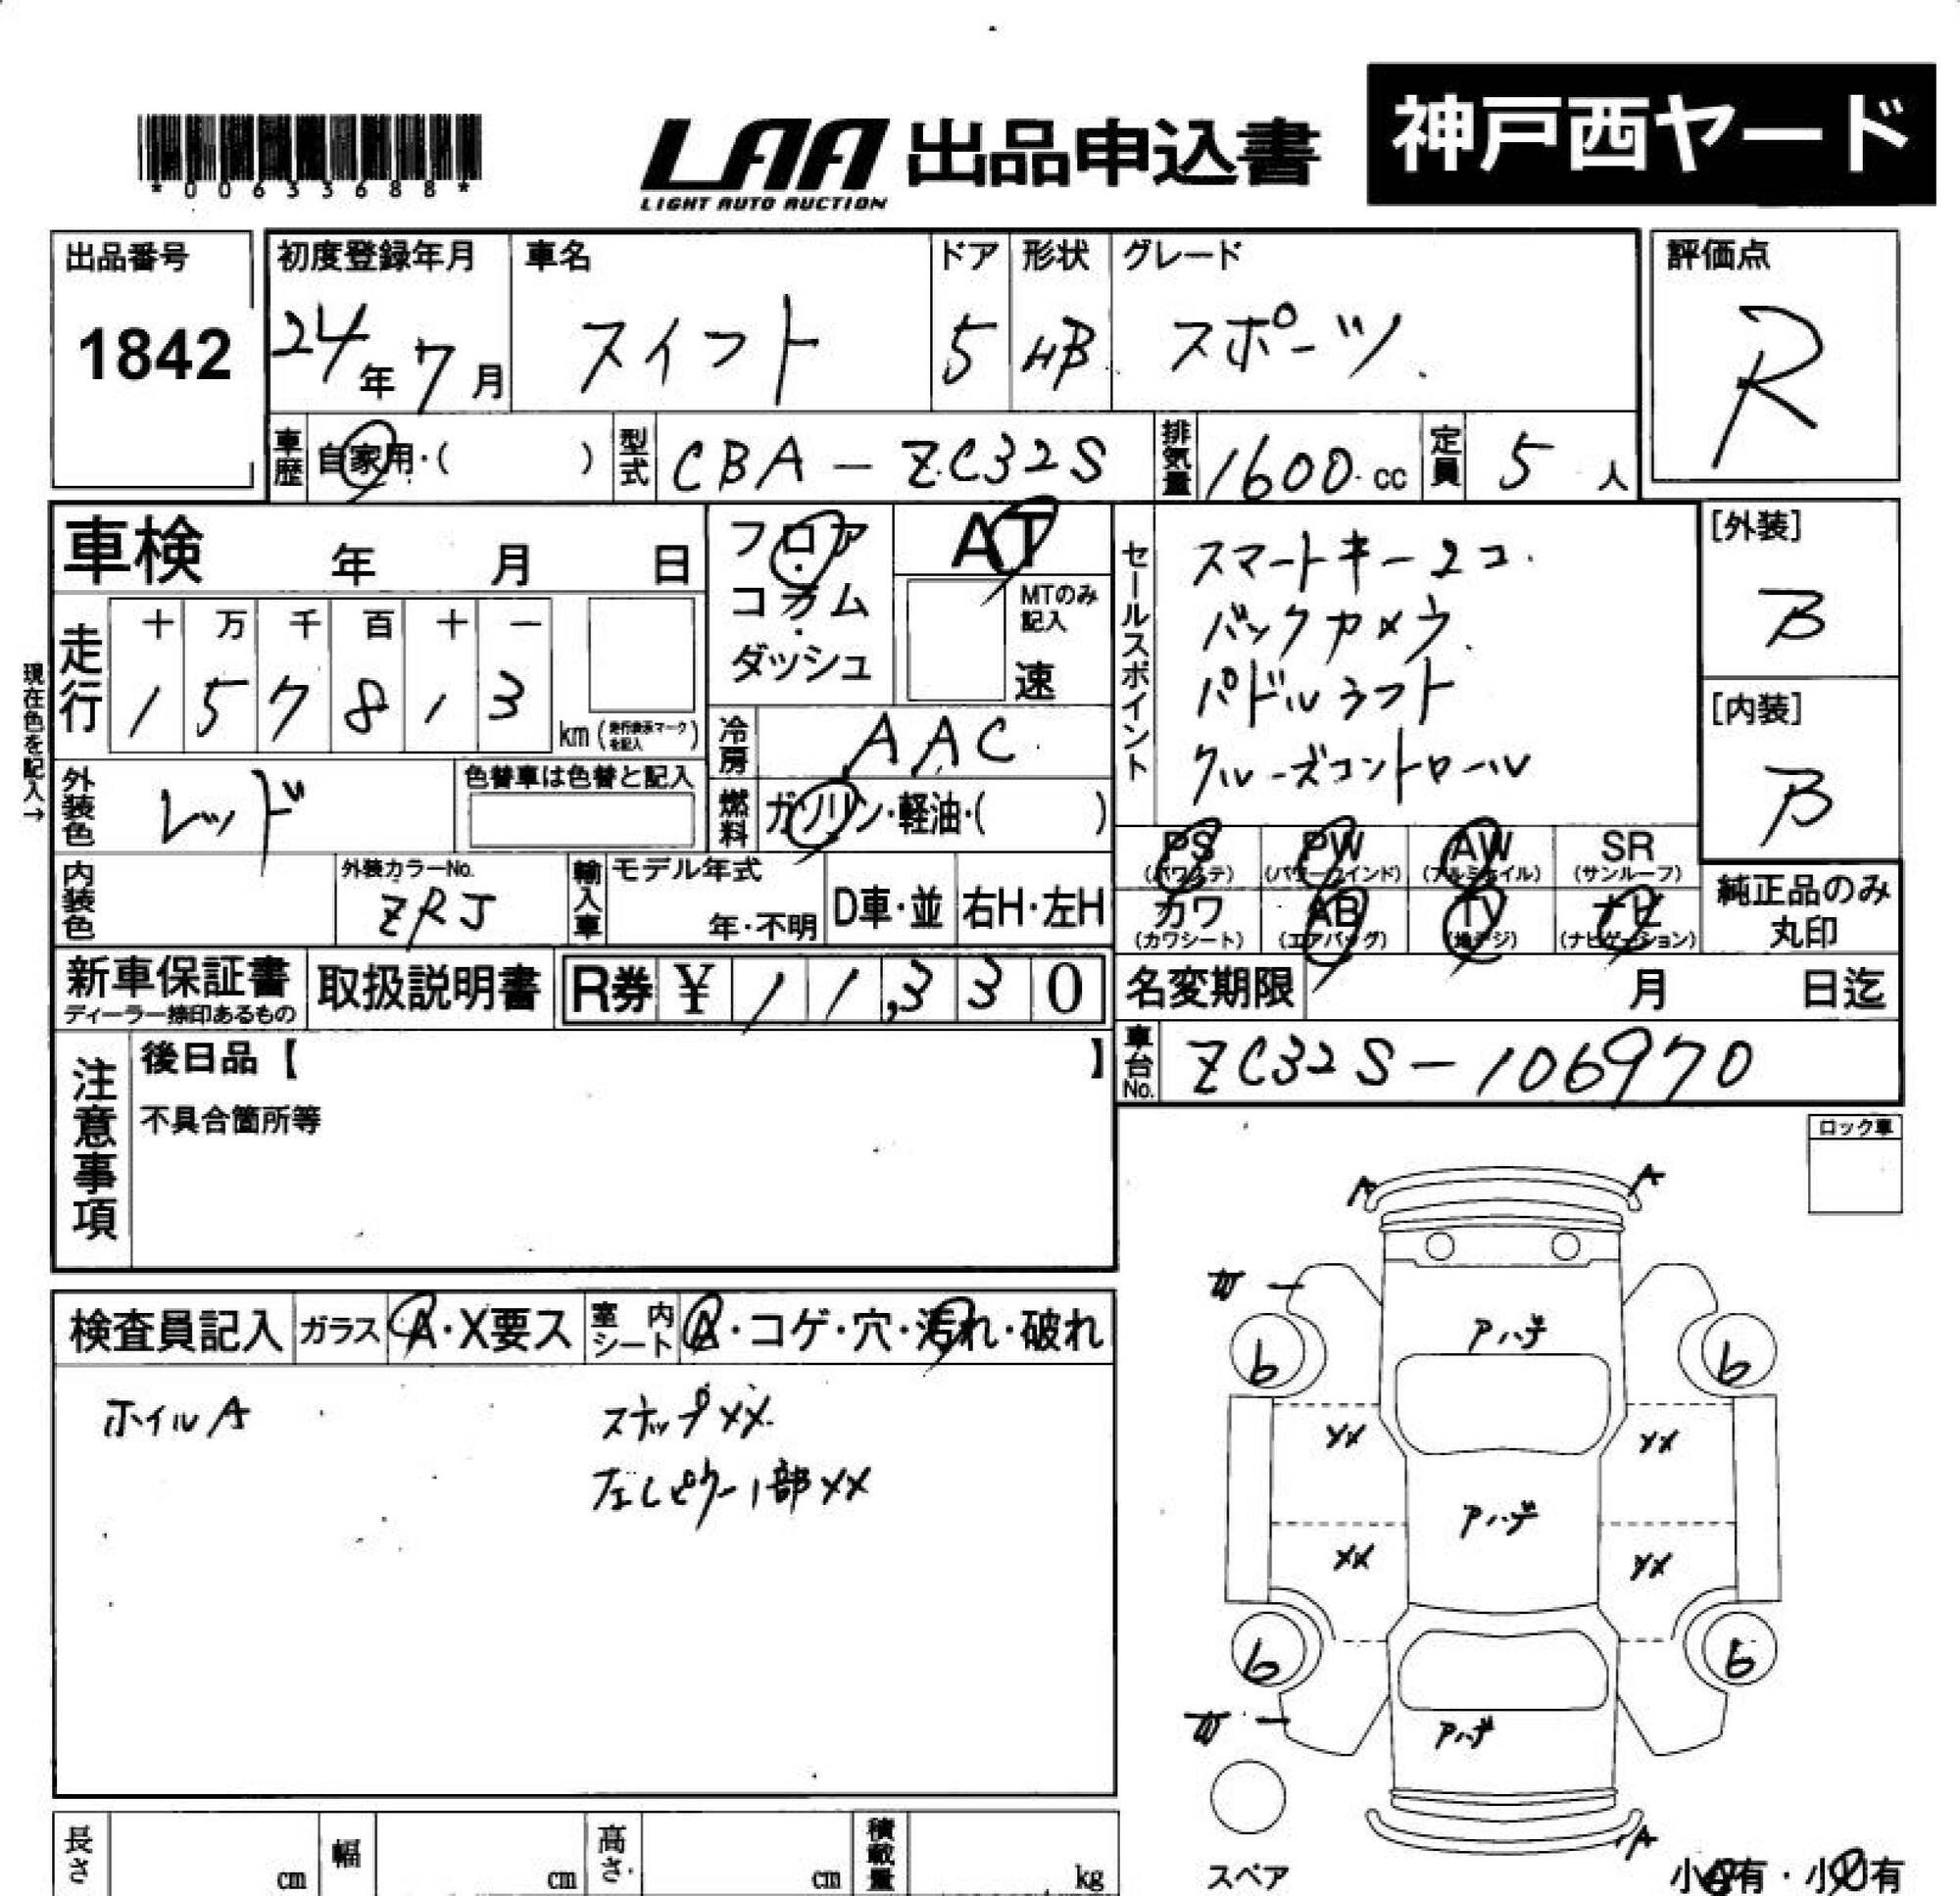 神戸西ヤード
*00633688*
LAA 出品申込書
LIGHT AUTO AUCTION
出品番号
1842
初度登録年月
24年7月
車名
スイフト
ドア
5
形状
HB
グレード
スポーツ
評価点
R
車歴 自家用・( )
型式 CBA-ZC32S
排気量 1600.cc
定員 5人
車検 年 月 日
フロア
・
コラム
・
ダッシュ
AT
MTのみ
記入
速
セールスポイント
スマートキー2コ.
バックカメラ.
パドルシフト
クルーズコントロール
[外装]
B
[内装]
B
現在色を記入→
走行
十 万 千 百 十 一
1 5 7 8 1 3
km(走行表示マークを記入)
冷房 AAC
外装色 レッド
色替車は色替と記入
燃料 ガソリン・軽油・( )
PS PW AW SR
(パワステ) (パワーウインド) (アルミホイル) (サンルーフ)
カワ AB TV ナビ
(カワシート) (エアバッグ) (地デジ) (ナビゲーション)
純正品のみ
丸印
内装色
外装カラーNo.
ZRJ
輸入車
モデル年式
年・不明
D車・並
右H・左H
新車保証書
ディーラー捺印あるもの
取扱説明書
R券 ¥ 11,330
名変期限 月 日迄
車台No. ZC32S-106970
注意事項
後日品【 】
不具合箇所等
ロック車
検査員記入
ガラス A・X要ス
室内シート A・コゲ・穴・汚れ・破れ
ホイルA
ステップXX
左Cピラー1部XX
A A
アハゲ
6 6
XX XX
アハゲ
XX XX
6 6
アハゲ
A
スペア
小A有・小U有
長さ cm
幅 cm
高さ cm
積載量 kg